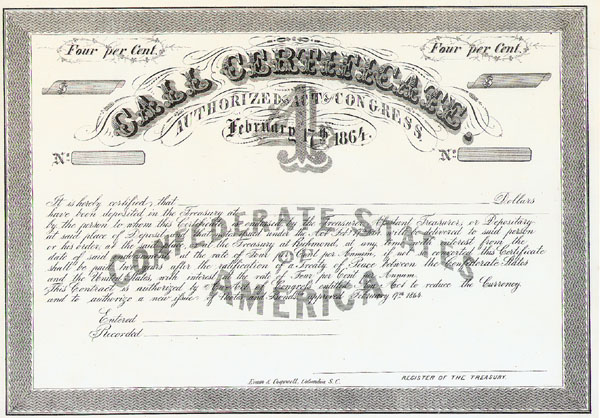 Four per Cent. Four per Cent.
CALL CERTIFICATE.
AUTHORIZED BY ACT OF CONGRESS
February 17th 1864.
4
$ $
No. No.
It is hereby certified, that Dollars
have been deposited in the Treasury at
by the person to whom this Certificate is endorsed by the Treasurer, Assistant Treasurer, or Depositary
at said place of Deposit. Bonds under the Act Feb 17 1864 will be delivered to said person
or his order, at the said place or at the Treasury at Richmond, at any time with interest from the
date of said at the rate of Four per Cent per Annum, if not converted this Certificate
shall be paid years after the ratification of a Treaty of Peace between the Confederate States
and the United States, with interest at the rate of Four per Cent per Annum.
This Contract is authorized by an Act of Congress entitled "An Act to reduce the Currency
and to authorize a new issue of Notes and Bonds" approved February 17th 1864
CONFEDERATE STATES
OF
AMERICA
Entered
Recorded
REGISTER OF THE TREASURY.
Evans & Cogswell, Columbia, S. C.